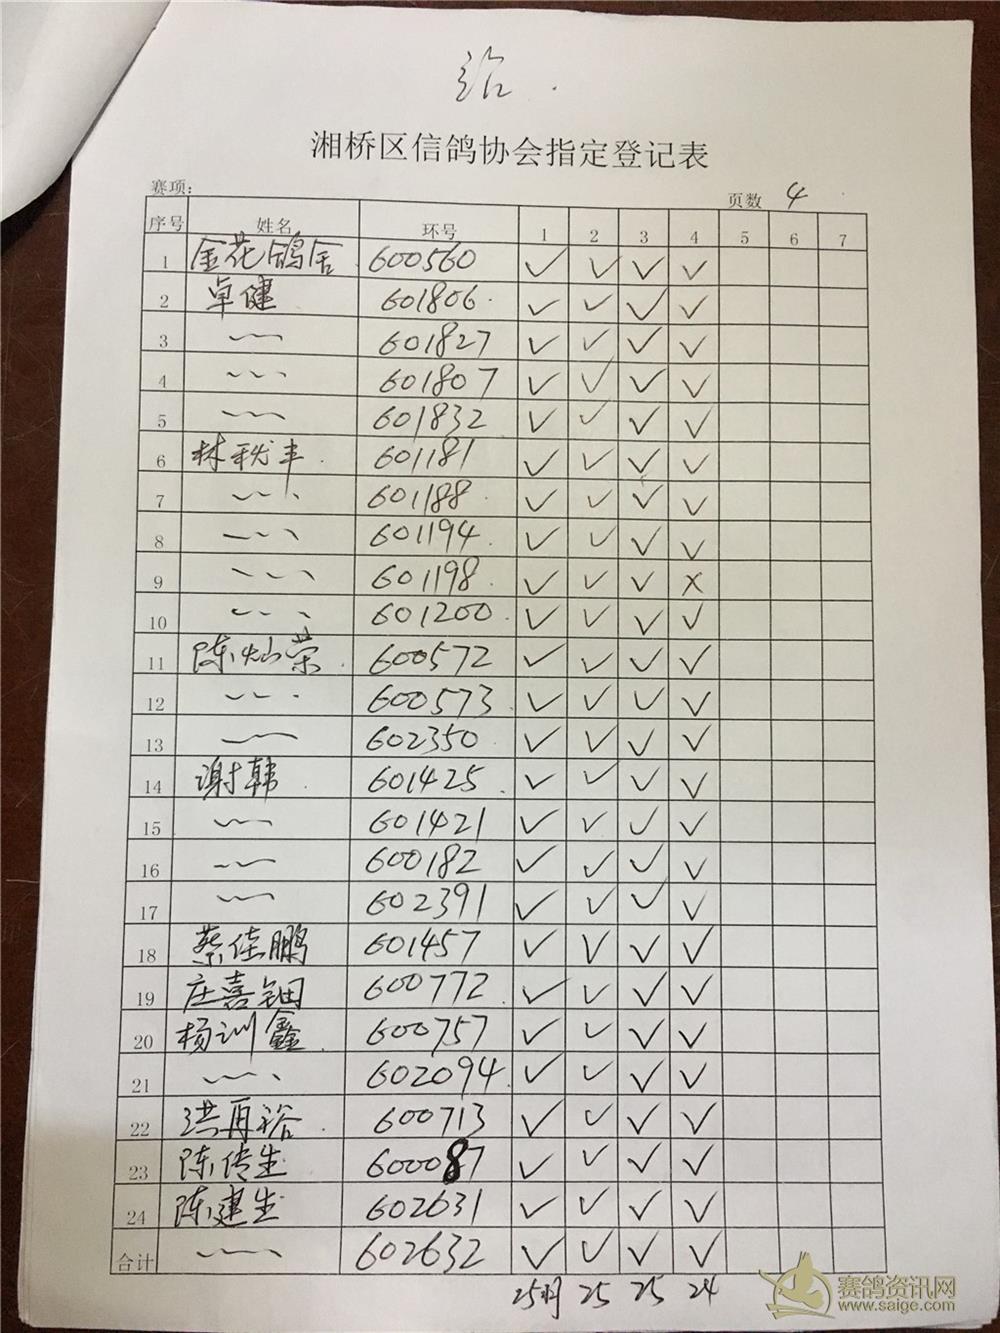 湘桥区信鸽协会指定登记表
赛项: 页数 4
序号 姓名 环号 1 2 3 4 5 6 7
1 金花鸽舍 600560 ✓ ✓ ✓ ✓
2 卓健 601806 ✓ ✓ ✓ ✓
3 〃 601827 ✓ ✓ ✓ ✓
4 〃 601807 ✓ ✓ ✓ ✓
5 〃 601832 ✓ ✓ ✓ ✓
6 林秋丰 601181 ✓ ✓ ✓ ✓
7 〃 601188 ✓ ✓ ✓ ✓
8 〃 601194 ✓ ✓ ✓ ✓
9 〃 601198 ✓ ✓ ✓ ×
10 〃 601200 ✓ ✓ ✓ ✓
11 陈灿荣 600572 ✓ ✓ ✓ ✓
12 〃 600573 ✓ ✓ ✓ ✓
13 〃 602350 ✓ ✓ ✓ ✓
14 谢韩 601425 ✓ ✓ ✓ ✓
15 〃 601421 ✓ ✓ ✓ ✓
16 〃 600182 ✓ ✓ ✓ ✓
17 〃 602391 ✓ ✓ ✓ ✓
18 蔡佳鹏 601457 ✓ ✓ ✓ ✓
19 庄嘉钿 600772 ✓ ✓ ✓ ✓
20 杨训鑫 600757 ✓ ✓ ✓ ✓
21 〃 602094 ✓ ✓ ✓ ✓
22 洪再裕 600713 ✓ ✓ ✓ ✓
23 陈传生 600087 ✓ ✓ ✓ ✓
24 陈建生 602631 ✓ ✓ ✓ ✓
合计 〃 602632 ✓ ✓ ✓ ✓
25羽 25 25 24
赛鸽资讯网
www.saige.com